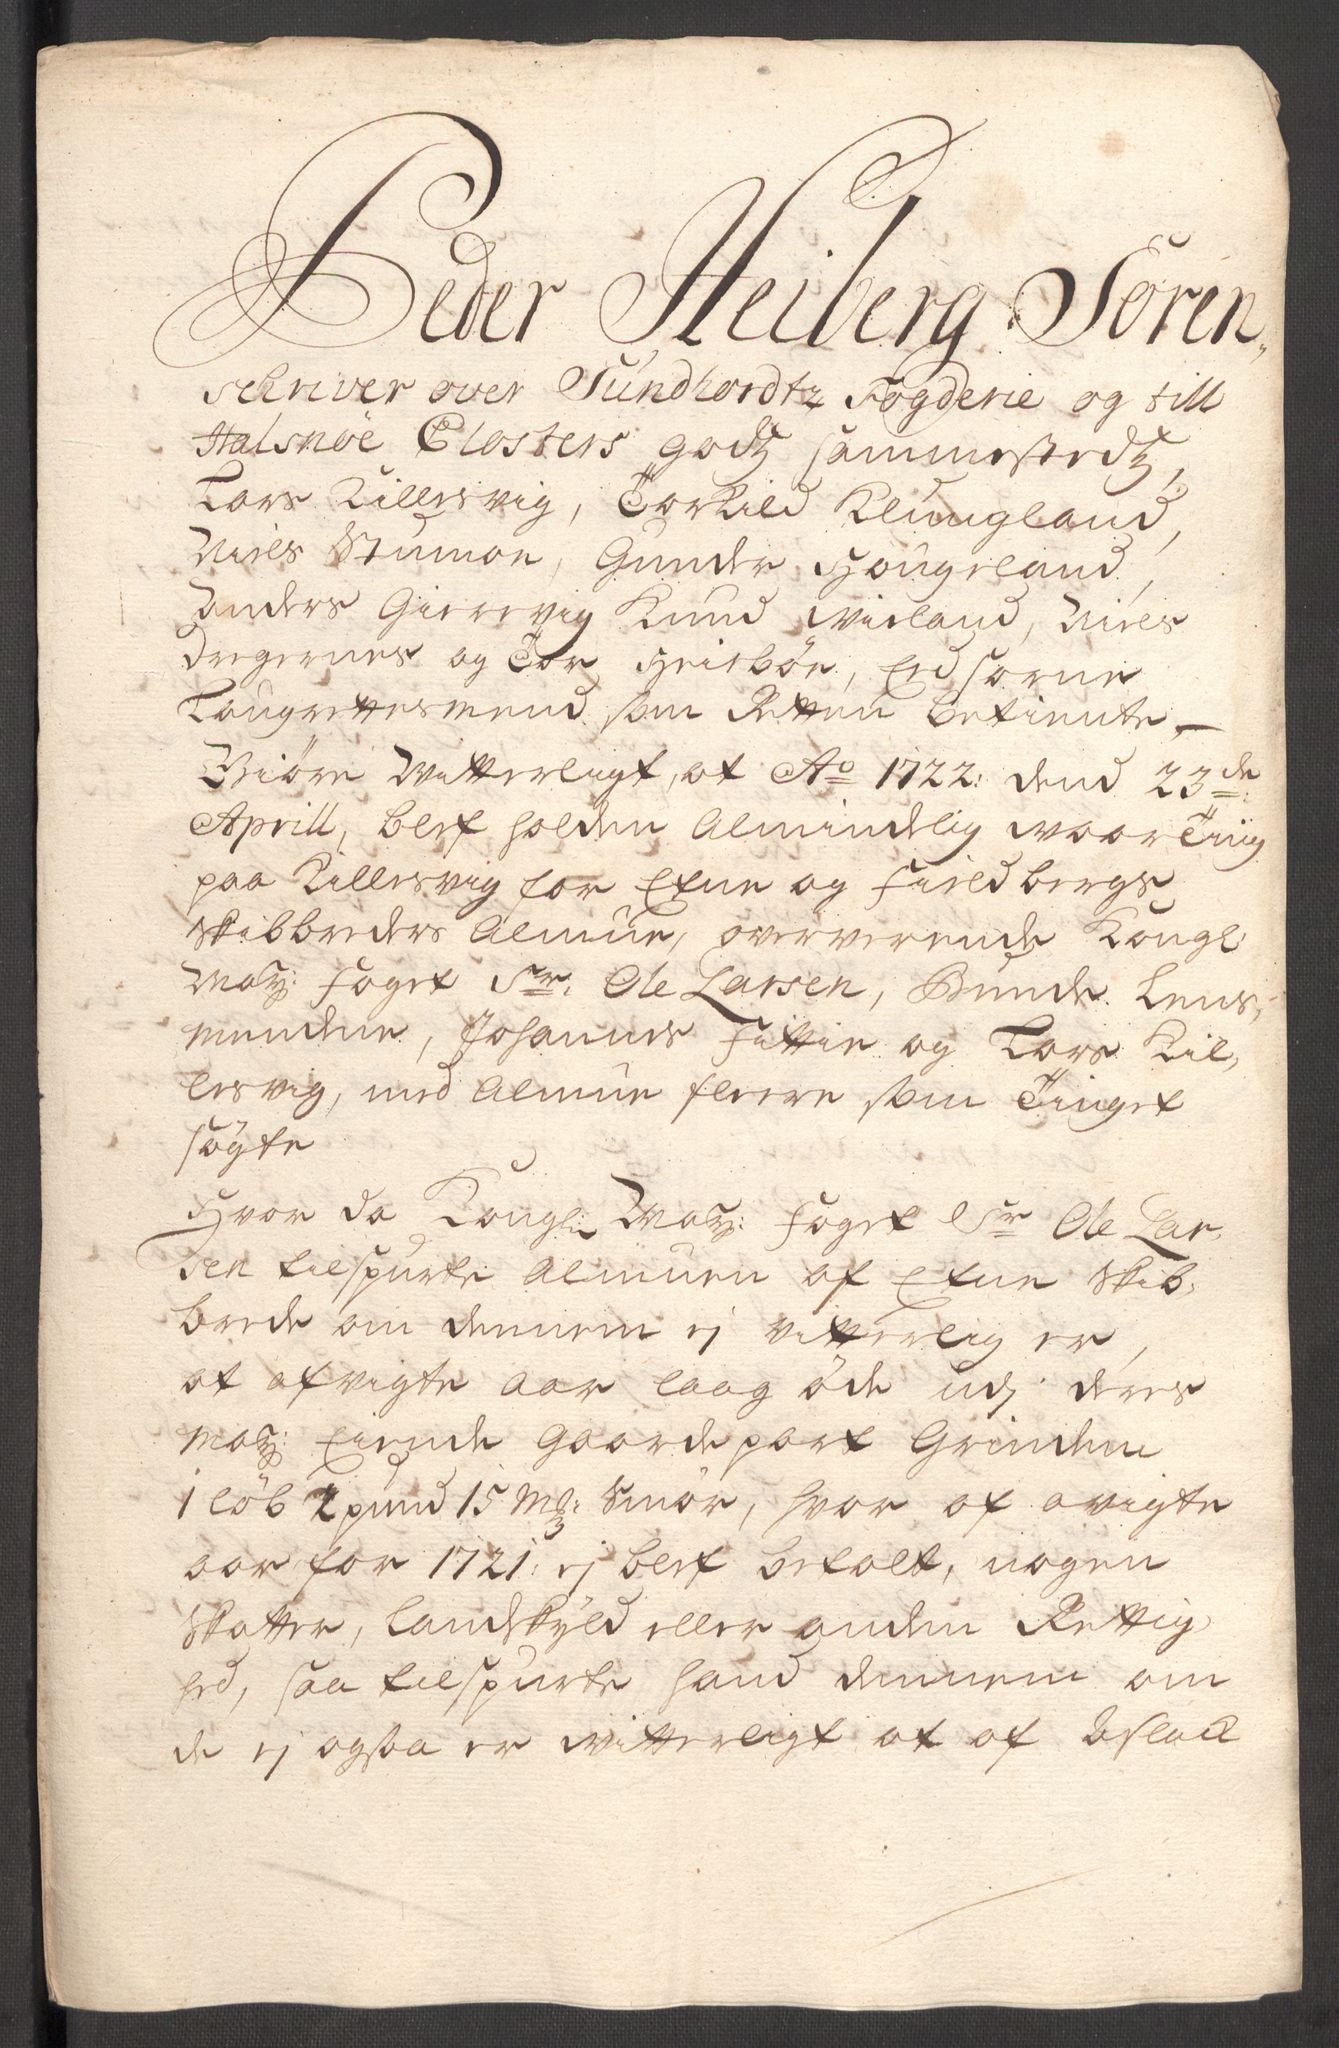 Peder Heiberg Soren„
schriver over Sundhordtz Fogderie og till
Halsnöe Closters godtz sammestedtz,
Lars Killesvig, Torkild Klungland,
Niels Stumoe, Gunder Hougeland,
Anders Gierevig Knud Wieland, Niels
Dregernes og Tor Heisböe, Eedsorne
Laugrettesmend som Retten betiente,
Giöre Witterligt, at Ao 1722: dend 23de:
Aprill, blef holden Almindelig Waar Ting
paa Killesvig for Etne og Fieldbergs
Skibbreders Almue, overværende Kongl:
Maytz: Foget Sr: Ole Larsen, Bunde Lens„
mendene, Johannes Fittie og Lars Kil„
lesvig, med Almue fleere som Tinget
søgte
Hvor da Kongl: Maytz: foget Sr Ole Lar„
sen tilspurte Almuen af Etne Skib„
brede om dennem ej vitterlig er,
at afvigte aar laag öde udj deres
Maytz: Eiende gaardepart Grinden
1 løb 2 pund 15 mk: Smør, hvor af avigte
aar for 1721: ej blef betalt, nogen
Skatter, Landskyld eller anden Rettig
hed, saa tilspurte hand dennem om
de ej ogsaa er witterligt at af Aslack